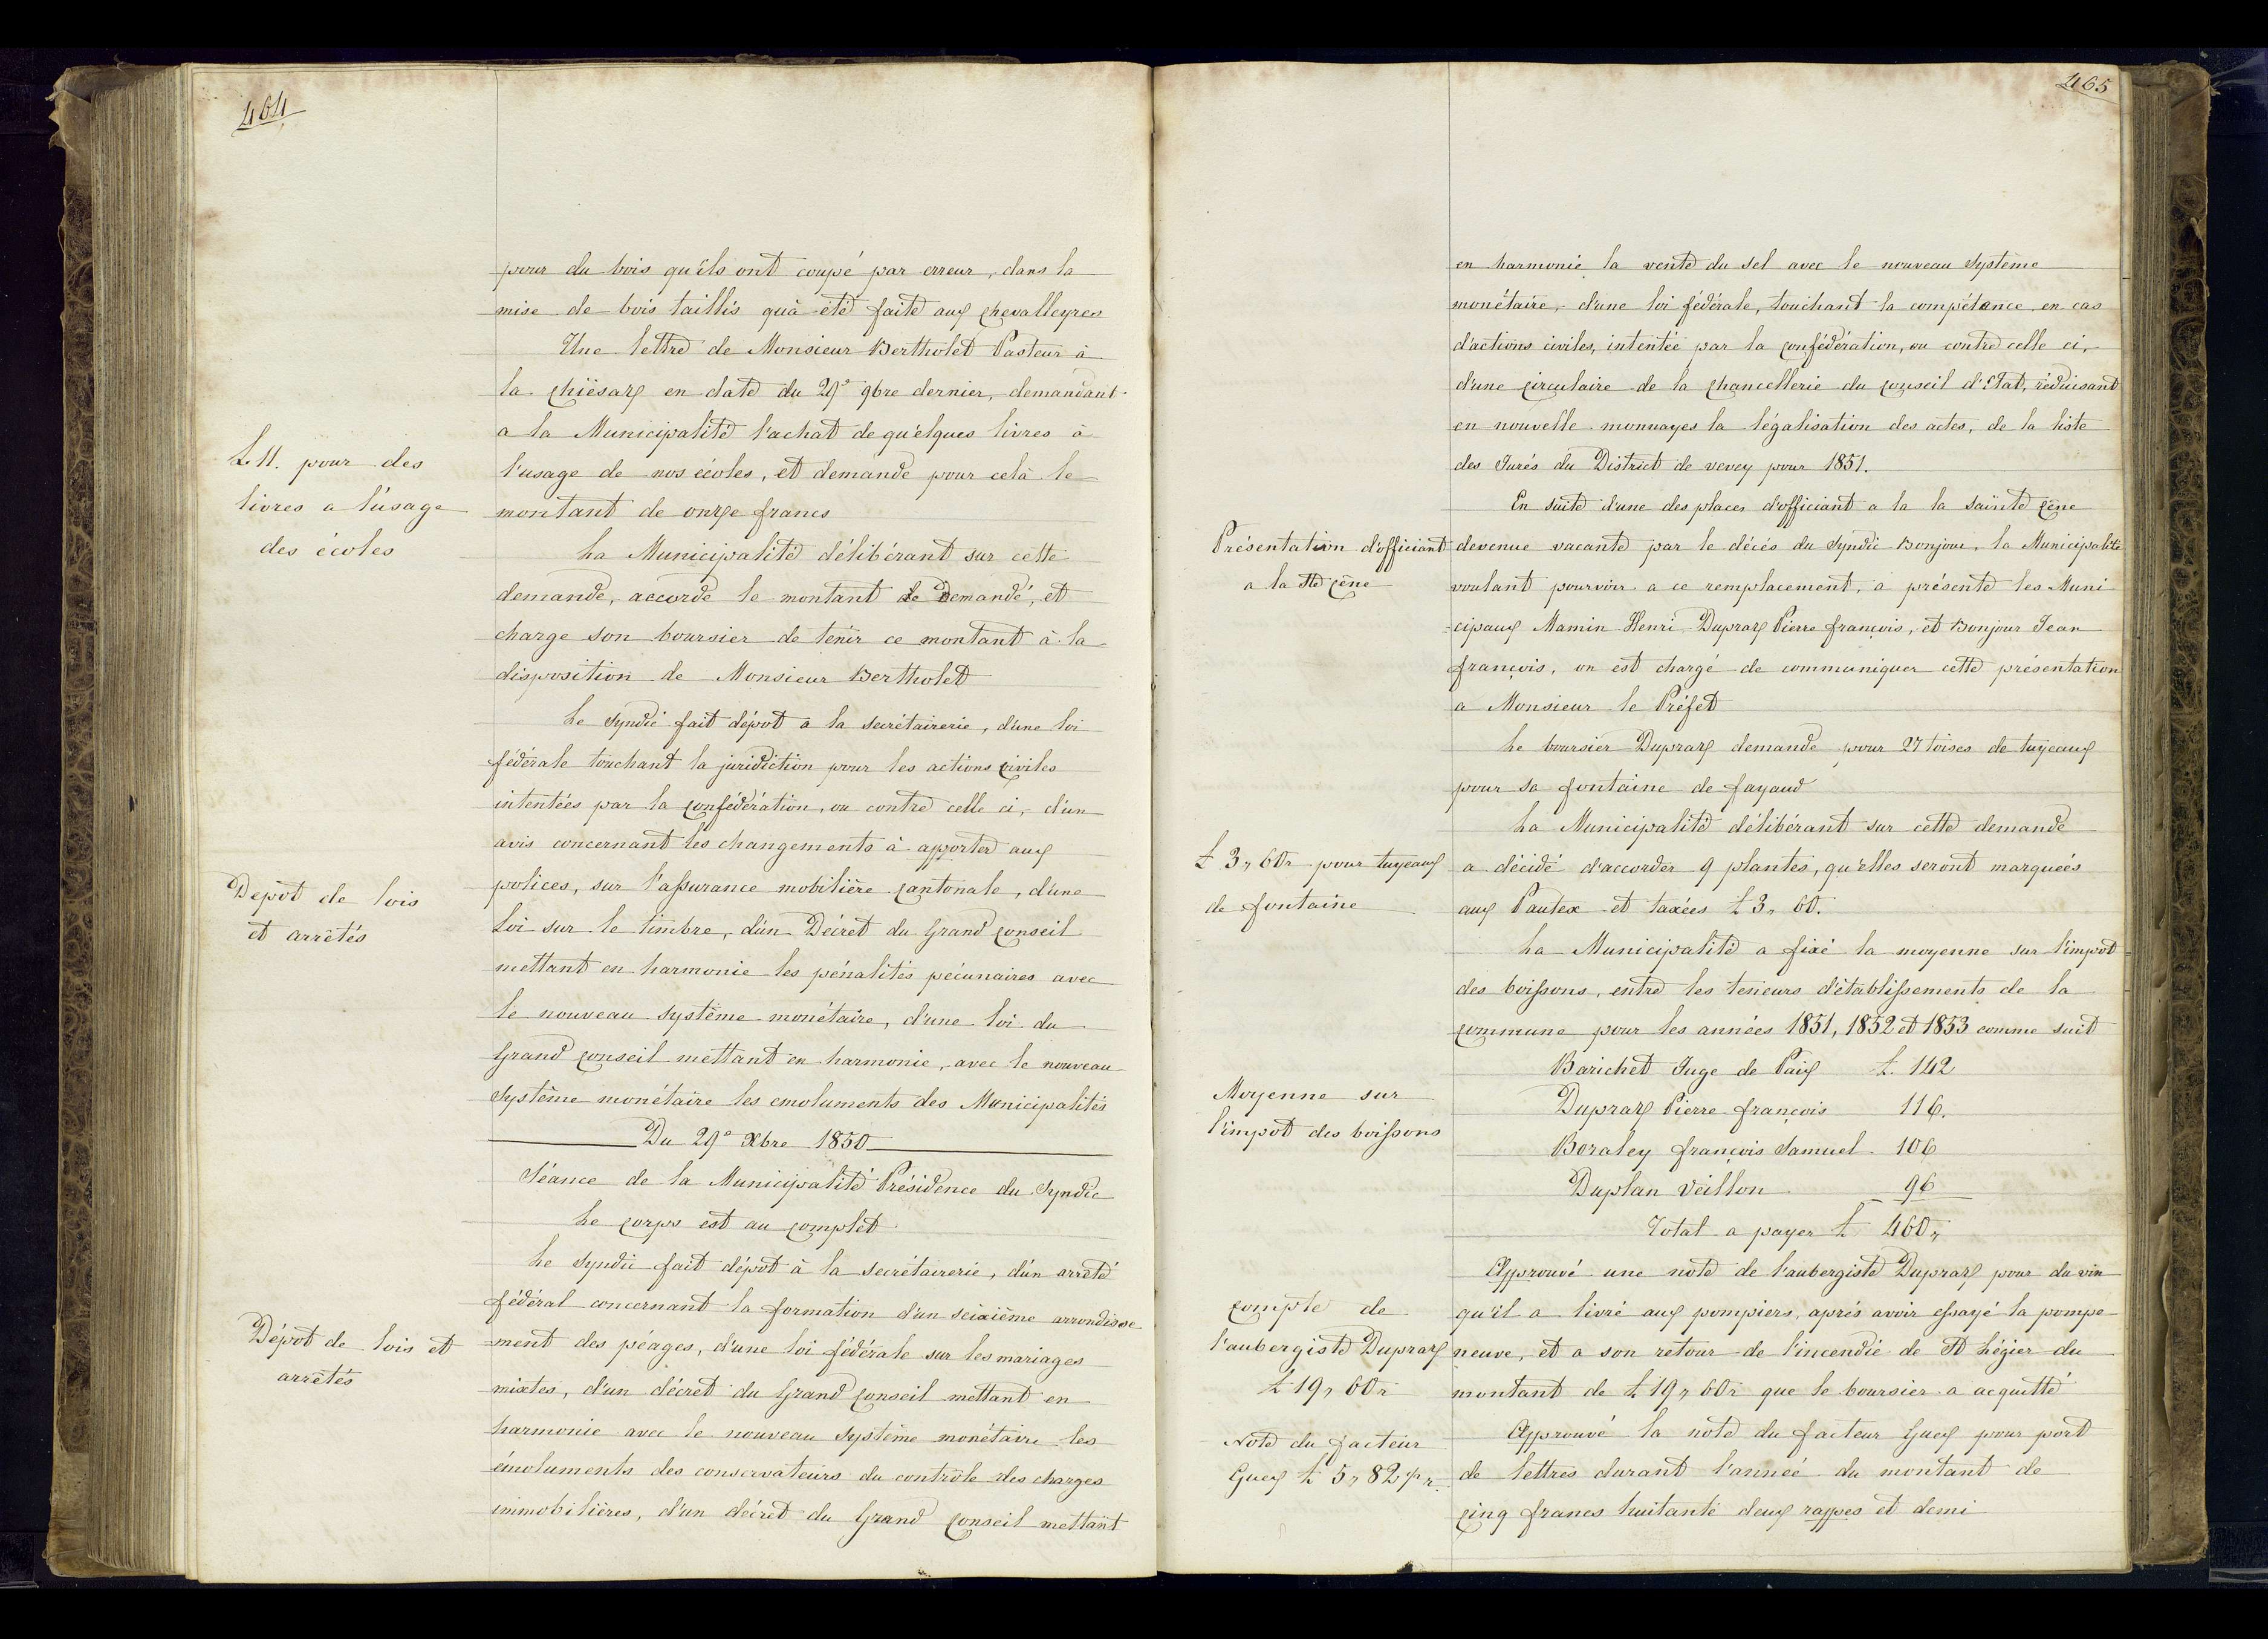 464
pour du bois qu'ils ont coupé par erreur, dans la
mise de bois taillis qu'à été faite aux chevalleyres
Une lettre de Monsieur Bertholet Pasteur à
la chiësaz en date du 29e 9bre dernier, demandant
a la Municipalité l'achat de quelques livres à
L 11. pour des
livres a l'usage
des écoles
l'usage de nos écoles, et demande pour cela le
montant de onze francs
La Municipalité délibérant sur cette
demande, accorde le montant de Demandé, et
charge son boursier de tenir ce montant à la
disposition de Monsieur Bertholet
Le Syndic fait dépot à la secrétairerie, d'une loi
fédérale touchant la juridiction pour les actions civiles
intentées par la confédération, ou contre celle ci, d'un
avis concernant les changements à apporter aux
Depôt de lois
et arrêtés
polices, sur l'assurance mobilière cantonale, d'une
Loi sur le timbre, d'un Décret du Grand conseil
mettant en harmonie les pénalités pécunaires avec
le nouveau système monétaire, d'une loi du
Grand conseil mettant en harmonie, avec le nouveau
Système monétaire les emoluments des Municipalités
Du 29e Xbre 1850
Séance de la Municipalité Présidence du Syndic
Le corps est au complet
Le Syndic fait dépot à la secrétairerie, d'un arrêté
fédéral concernant la formation d'un seixième arrondisse
Dépot de lois et
arrêtés
-ment des péages, d'une loi fédérale sur les mariages
mixtes, d'un décret du Grand conseil mettant en
harmonie avec le nouveau Système monétaire les
émoluments des conservateurs du contrôle des charges
immobilières, d'un décret du Grand conseil mettant
465
en harmonie la vente du sel avec le nouveau Système
monétaire, d'une loi fédérale, touchant la compétance en cas
d'actions civiles, intentée par la confédération, ou contre celle ci,
d'une circulaire de la chancellerie du conseil d'Etat, réduisant
en nouvelle monnayes la légalisation des actes, de la liste
des Jurés du District de vevey pour 1851.
En suite d'une des places d'officiant a la la sainte cène
Présentation d'officiant
a la Ste cène
devenue vacante par le décés du Syndic Bonjour, la Municipalité
voulant pourvoir a ce remplacement, a présenté les Muni
-cipaux Mamin Henri, Dupraz Pierre françois, et Bonjour Jean
françois, on est chargé de communiquer cette présentation
a Monsieur le Préfet
Le boursier Dupraz demande pour 27 toises de tuyeaux
pour sa fontaine de fayaud
La Municipalité délibérant sur cette demande
L 3,, 60r pour tuyeaux
de fontaine
a décidé d'accorder 9 plantes, qu'elles seront marqueés
aux Pautex et taxées L 3,, 60.
La Municipalité a fixé la moyenne sur l'impot
des boissons, entre les teneurs d'établissements de la
commune pour les années 1851, 1852 et 1853 comme suit
Moyenne sur
l'impot des boissons
Barichet Juge de Paix L. 142
Dupraz Pierre françois 116.
Boraley françois Samuel 106
Duplan Veillon 96
Total a payer L 460,,
Approuvé une note de l'aubergiste Dupraz pour du vin
compte de
l'aubergiste Dupraz
L 19,, 60r
qu'il a livré aux pompiers, aprés avoir essayé la pompe
neuve, et a son retour de l'incendie de St Légier du
montant de L 19,, 60r que le boursier a acquitté
Note du facteur
Guex L 5,, 82½ r.
Approuvé la note du facteur Guex pour port
de lettres durant l'anneé du montant de
cinq francs huitante deux rappes et demi